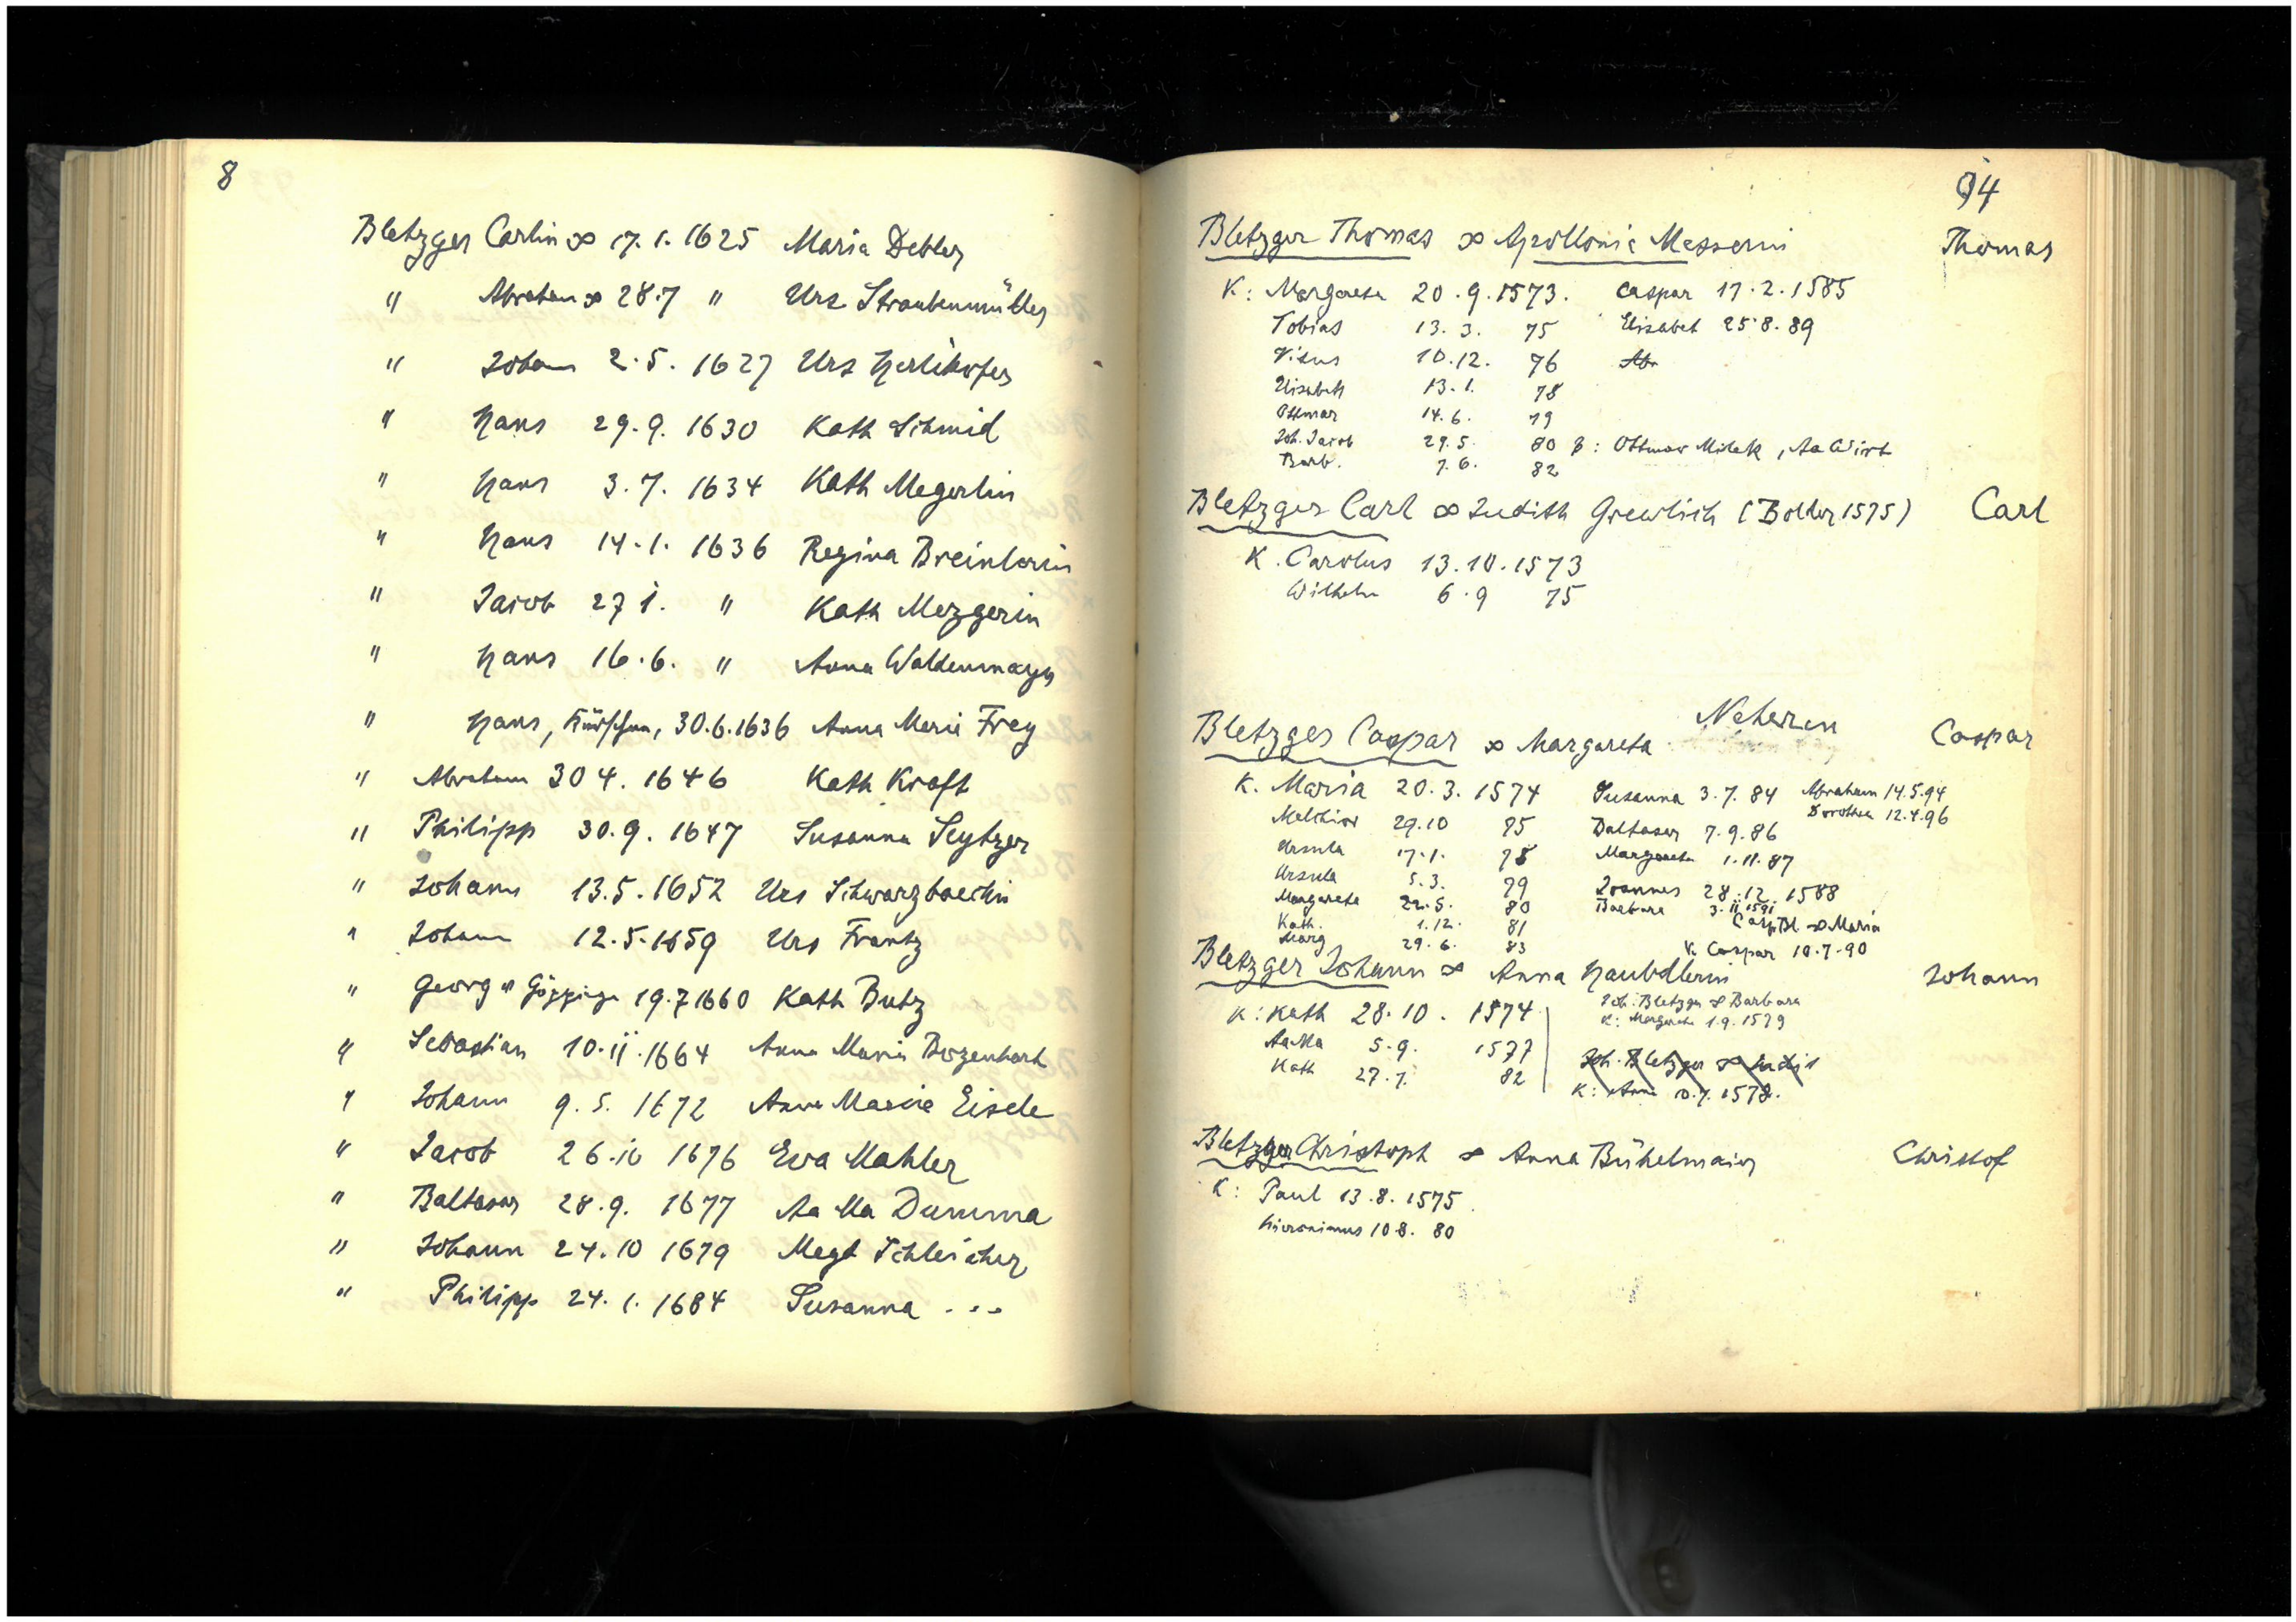 8
Bletzger Carlin ∞ 17.1.1625 Maria Debler
" Abraham ∞ 28.7 " Urs Straubenmüller
" Johann 2.5.1627 Urs Herlikofer
" Hans 29.9.1630 Kath Schmid
" Hans 3.7.1634 Kath Megerlin
" Hans 14.1.1636 Regina
" Jacob 27 1. " Kath Mezgerin
" Hans 16.6. " Anna Waldenmayr
" Hans, Kürschner, 30.6.1636 Anna Maria Frey
" Abraham 30 4.1646 Kath Kraft
" Philipp 30.9.1647 Susanna Seytzer
" Johann 13.5.1652 Urs
" Johann 12.5.1659 Urs Frantz
" Georg " 19.7 1660 Kath Butz
" Sebastian 10.11.1664 Anna Maria Bozenhart
" Johann 9.5.1672 Anna Maria Eisele
" Jacob 26.10 1676 Eva Mahler
" Baltasar 28.9.1677 Aa Ma
" Johann 24.10 1679 Magd Schleicher
" Philipp 24.1.1684 Susanna ...
94
Bletzger Thomas ∞ Apollonia Messerin Thomas
K: Margareta 20.9.1573. Caspar 17.2.1585
Tobias 13.3. 75 Elisabet 25.8.89
Vitus 10.12. 76 Abr
Elisabeth 13.1. 78
Ottmar 14.6. 79
Joh. Jacob 29.5. 80 P: Ottmar , Aa Wirt
Barb. 7.6. 82
Bletzger Carl ∞ Judith Grewlich (1575) Carl
K. Carolus 13.10.1573
Wilhelm 6.9 75
Bletzger Caspar ∞ Margareta Neheren Caspar
K. Maria 20.3.1574 Susanna 3.7.84 Abraham 14.5.94
Melchior 29.10 75 Baltasar 7.9.86 Dorothea 12.4.96
Ursula 17.1. 78 Margareta 1.11.87
Ursula 5.3. 79 Joannes 28.12.1588
Margareta 22.5. 80 Barbara 3.11.1591
Kath. 1.12. 81 Casp Bl. ∞ Maria
Marg 29.6. 83 K. Caspar 10.7.90
Bletzger Johann ∞ Anna Johann
K: Kath 28.10.1574 Joh. Bletzger ∞ Barbara
K: Margareta 1.9.1579
AaMa 5.9. 1577 Joh. Bletzger ∞
Kath 27.7. 82 K: Anna 10.7.1578.
Bletzger Christoph ∞ Anna Bühelmaier Christof
K: Paul 13.8.1575.
Hieronimus 10 8. 80